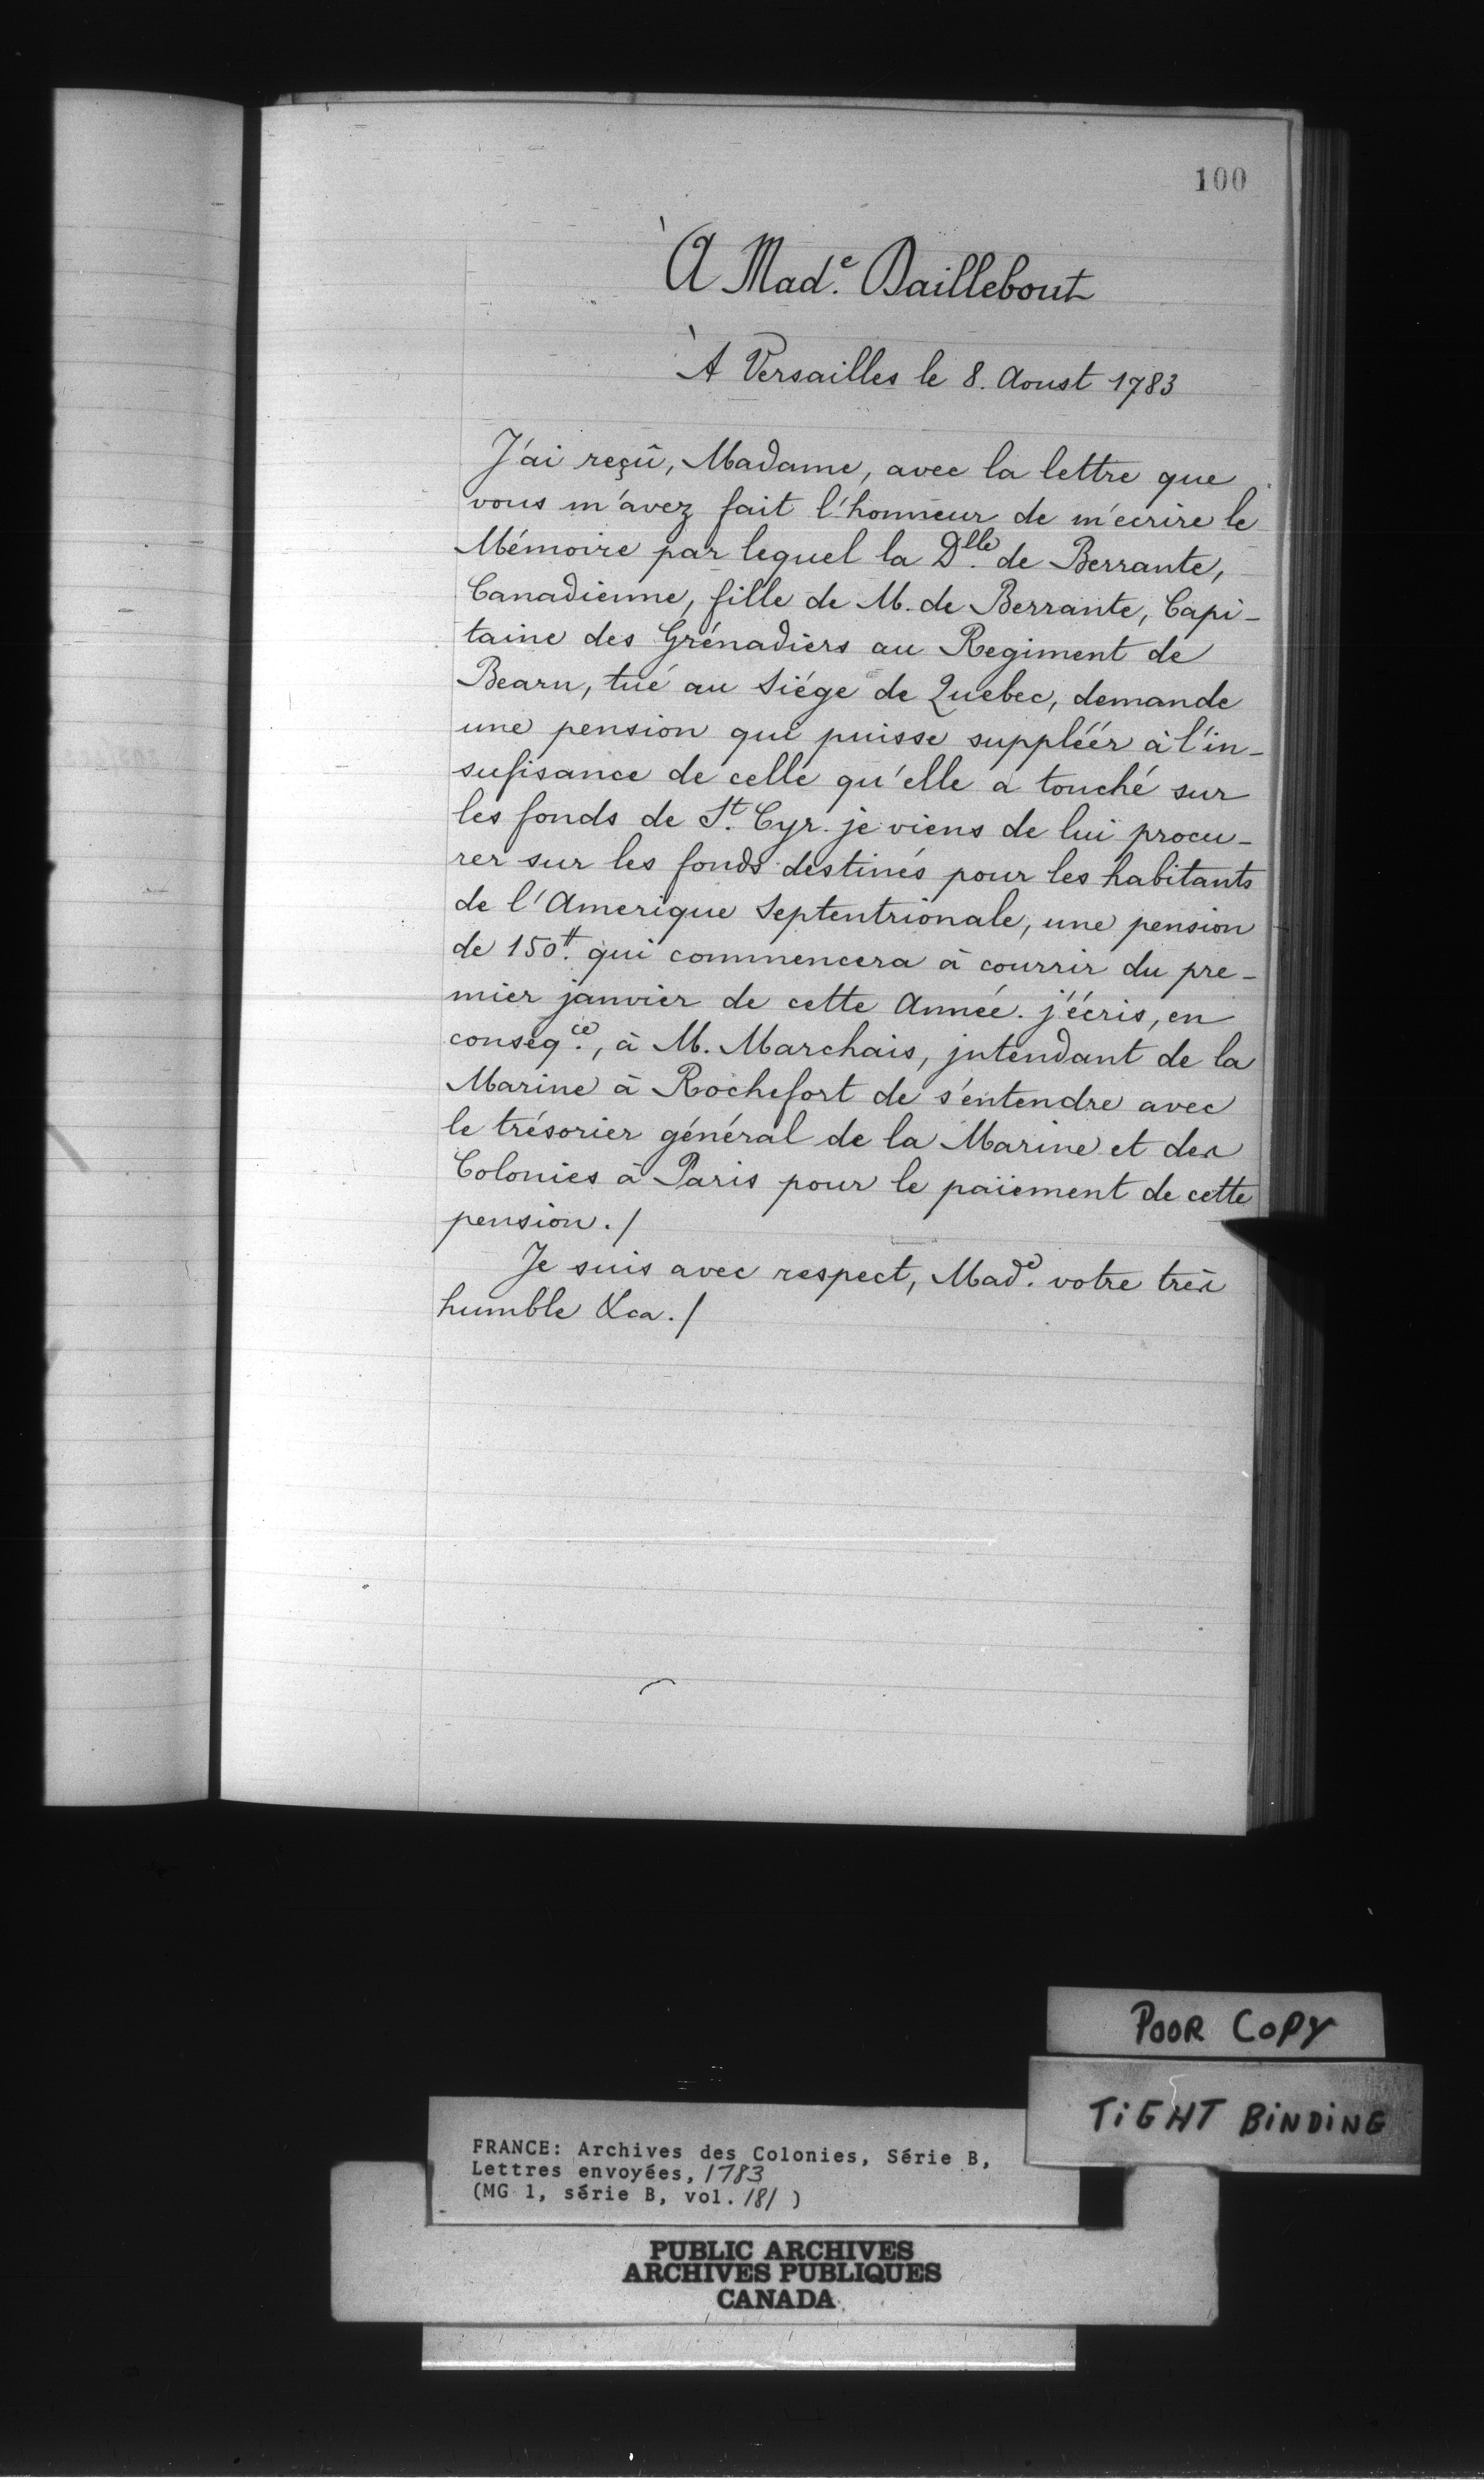 100
À Mad.e Daillebout
À Versailles le 8. Aoust 1783
J'ai reçû, Madame, avec la lettre que
vous m'avez fait l'honneur de m'ecrire le
Mémoire par lequel la D.lle de Berrante,
Canadienne, fille de M. de Berrante, Capi-
taine des Grénadiers au Regiment de
Bearn, tué au Siége de Quebec, demande
une pension qui puisse suppléér à l'in-
sufisance de celle qu'elle a touché sur
les fonds de S.t Cyr. je viens de lui procu-
rer sur les fonds destinés pour les habitants
de l'Amerique Septentrionale, une pension
de 150.tt qui commencera à courrir du pre-
mier janvier de cette Année. j'écris, en
conseq.ce, à M. Marchais, jntendant de la
Marine à Rochefort de s'entendre avec
le trésorier général de la Marine et des
Colonies à Paris pour le païement de cette
pension./
Je suis avec respect, Mad.e votre très
humble &ca./
POOR COPY
TiGHT BiNDiNG
FRANCE: Archives des Colonies, Série B,
Lettres envoyées, 1783
(MG 1, série B, vol. 181 )
PUBLIC ARCHIVES
ARCHIVES PUBLIQUES
CANADA